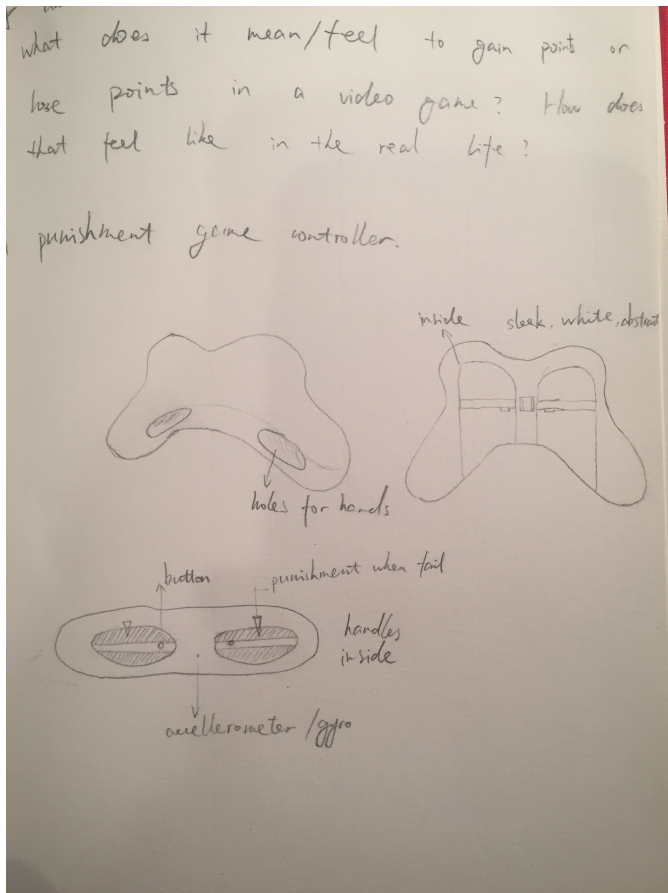 what does it mean/feel to gain points or
lose points in a video game? How does
that feel like in the real life?
punishment game controller.
inside sleek, white, abstract
holes for hands
button punishment when fail
handles
inside
accellerometer /gyro